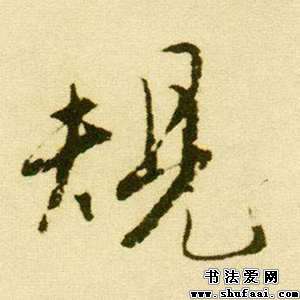 規
书法爱网
www.shufaai.com